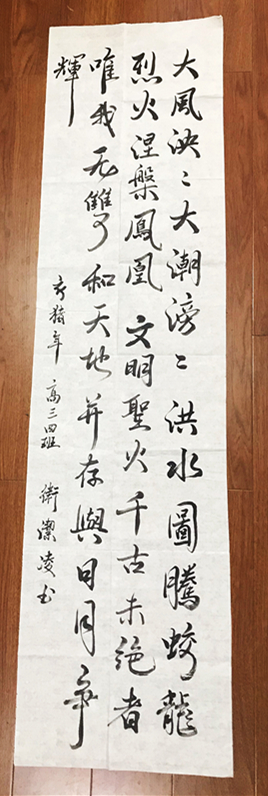 大風泱〻大潮滂〻洪水圖騰蛟龍
烈火涅槃鳳凰文明聖火千古未絕者
唯我无雙和天地并存與日月争
輝
亥猪年 高三四班 衛潔凌书